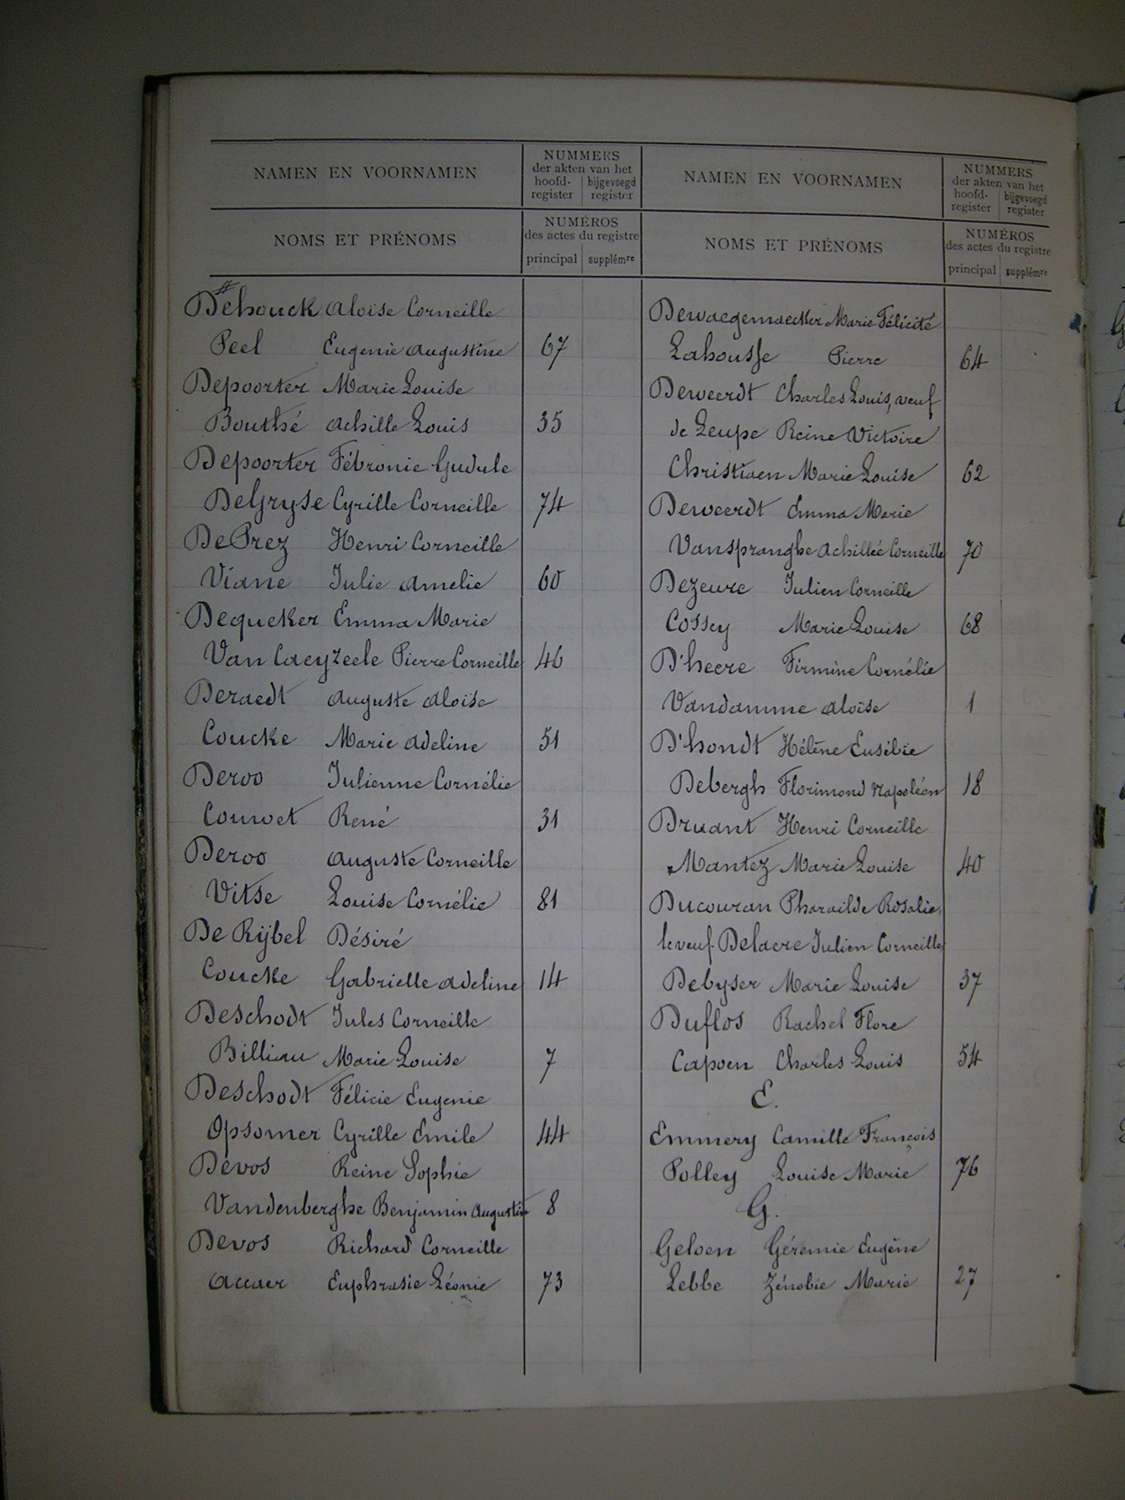 NAMEN EN VOORNAMEN
NUMMERS
der akten van het
hoofd-register
bijgevoegd register
NOMS ET PRÉNOMS
NUMÉROS
des actes du registre
principal supplémre
Dehouck Aloïse Corneille
Peel Eugenie Augustine 67
Depoorter Marie Louise
Bouthé Achille Louis 35
Depoorter Fébronie Gudule
DeGryse Cyrille Corneille 74
DePrez Henri Corneille
Viane Julie Amelie 60
Dequeker Emma Marie
Van Caeyzeele Pierre Corneille 46
Deraedt Auguste Aloïse
Coucke Marie Adeline 51
Deroo Julienne Cornélie
Couvet René 31
Deroo Auguste Corneille
Vitse Louise Cornélie 81
De Rijbel Désiré
Coucke Gabrielle Adeline 14
Deschodt Jules Corneille
Billiau Marie Louise 7
Deschodt Félicie Eugenie
Opsomer Cyrille Emile 44
Devos Reine Sophie
Vandenberghe Benjamin Augustin 8
Devos Richard Corneille
Accaer Euphrasie Léonie 73
NAMEN EN VOORNAMEN
NUMMERS
der akten van het
hoofd-register
bijgevoegd register
NOMS ET PRÉNOMS
NUMÉROS
des actes du registre
principal supplémre
Dewaegemaecker Marie Félicité
Lahousse Pierre 64
Deweerdt Charles Louis, veuf
de Leupe Reine Victoire
Christiaen Marie Louise 62
Deweerdt Emma Marie
Vanspranghe Achillée Corneille 70
Dezeure Julien Corneille
Cossey Marie Louise 68
D'heere Firmine Cornélie
Vandamme Aloïse 1
D'hondt Hélène Eusébie
Debergh Florimond Napoléon 18
Druant Henri Corneille
Mantez Marie Louise 40
Ducouran Pharaïlde Rosalie,
le veuf Delacre Julien Corneille
Debyser Marie Louise 37
Duflos Rachel Flore
Capoen Charles Louis 54
E.
Emmery Camille François
Polley Louise Marie 76
G.
Geloen Gérémie Eugène
Lebbe Zénobie Marie 27